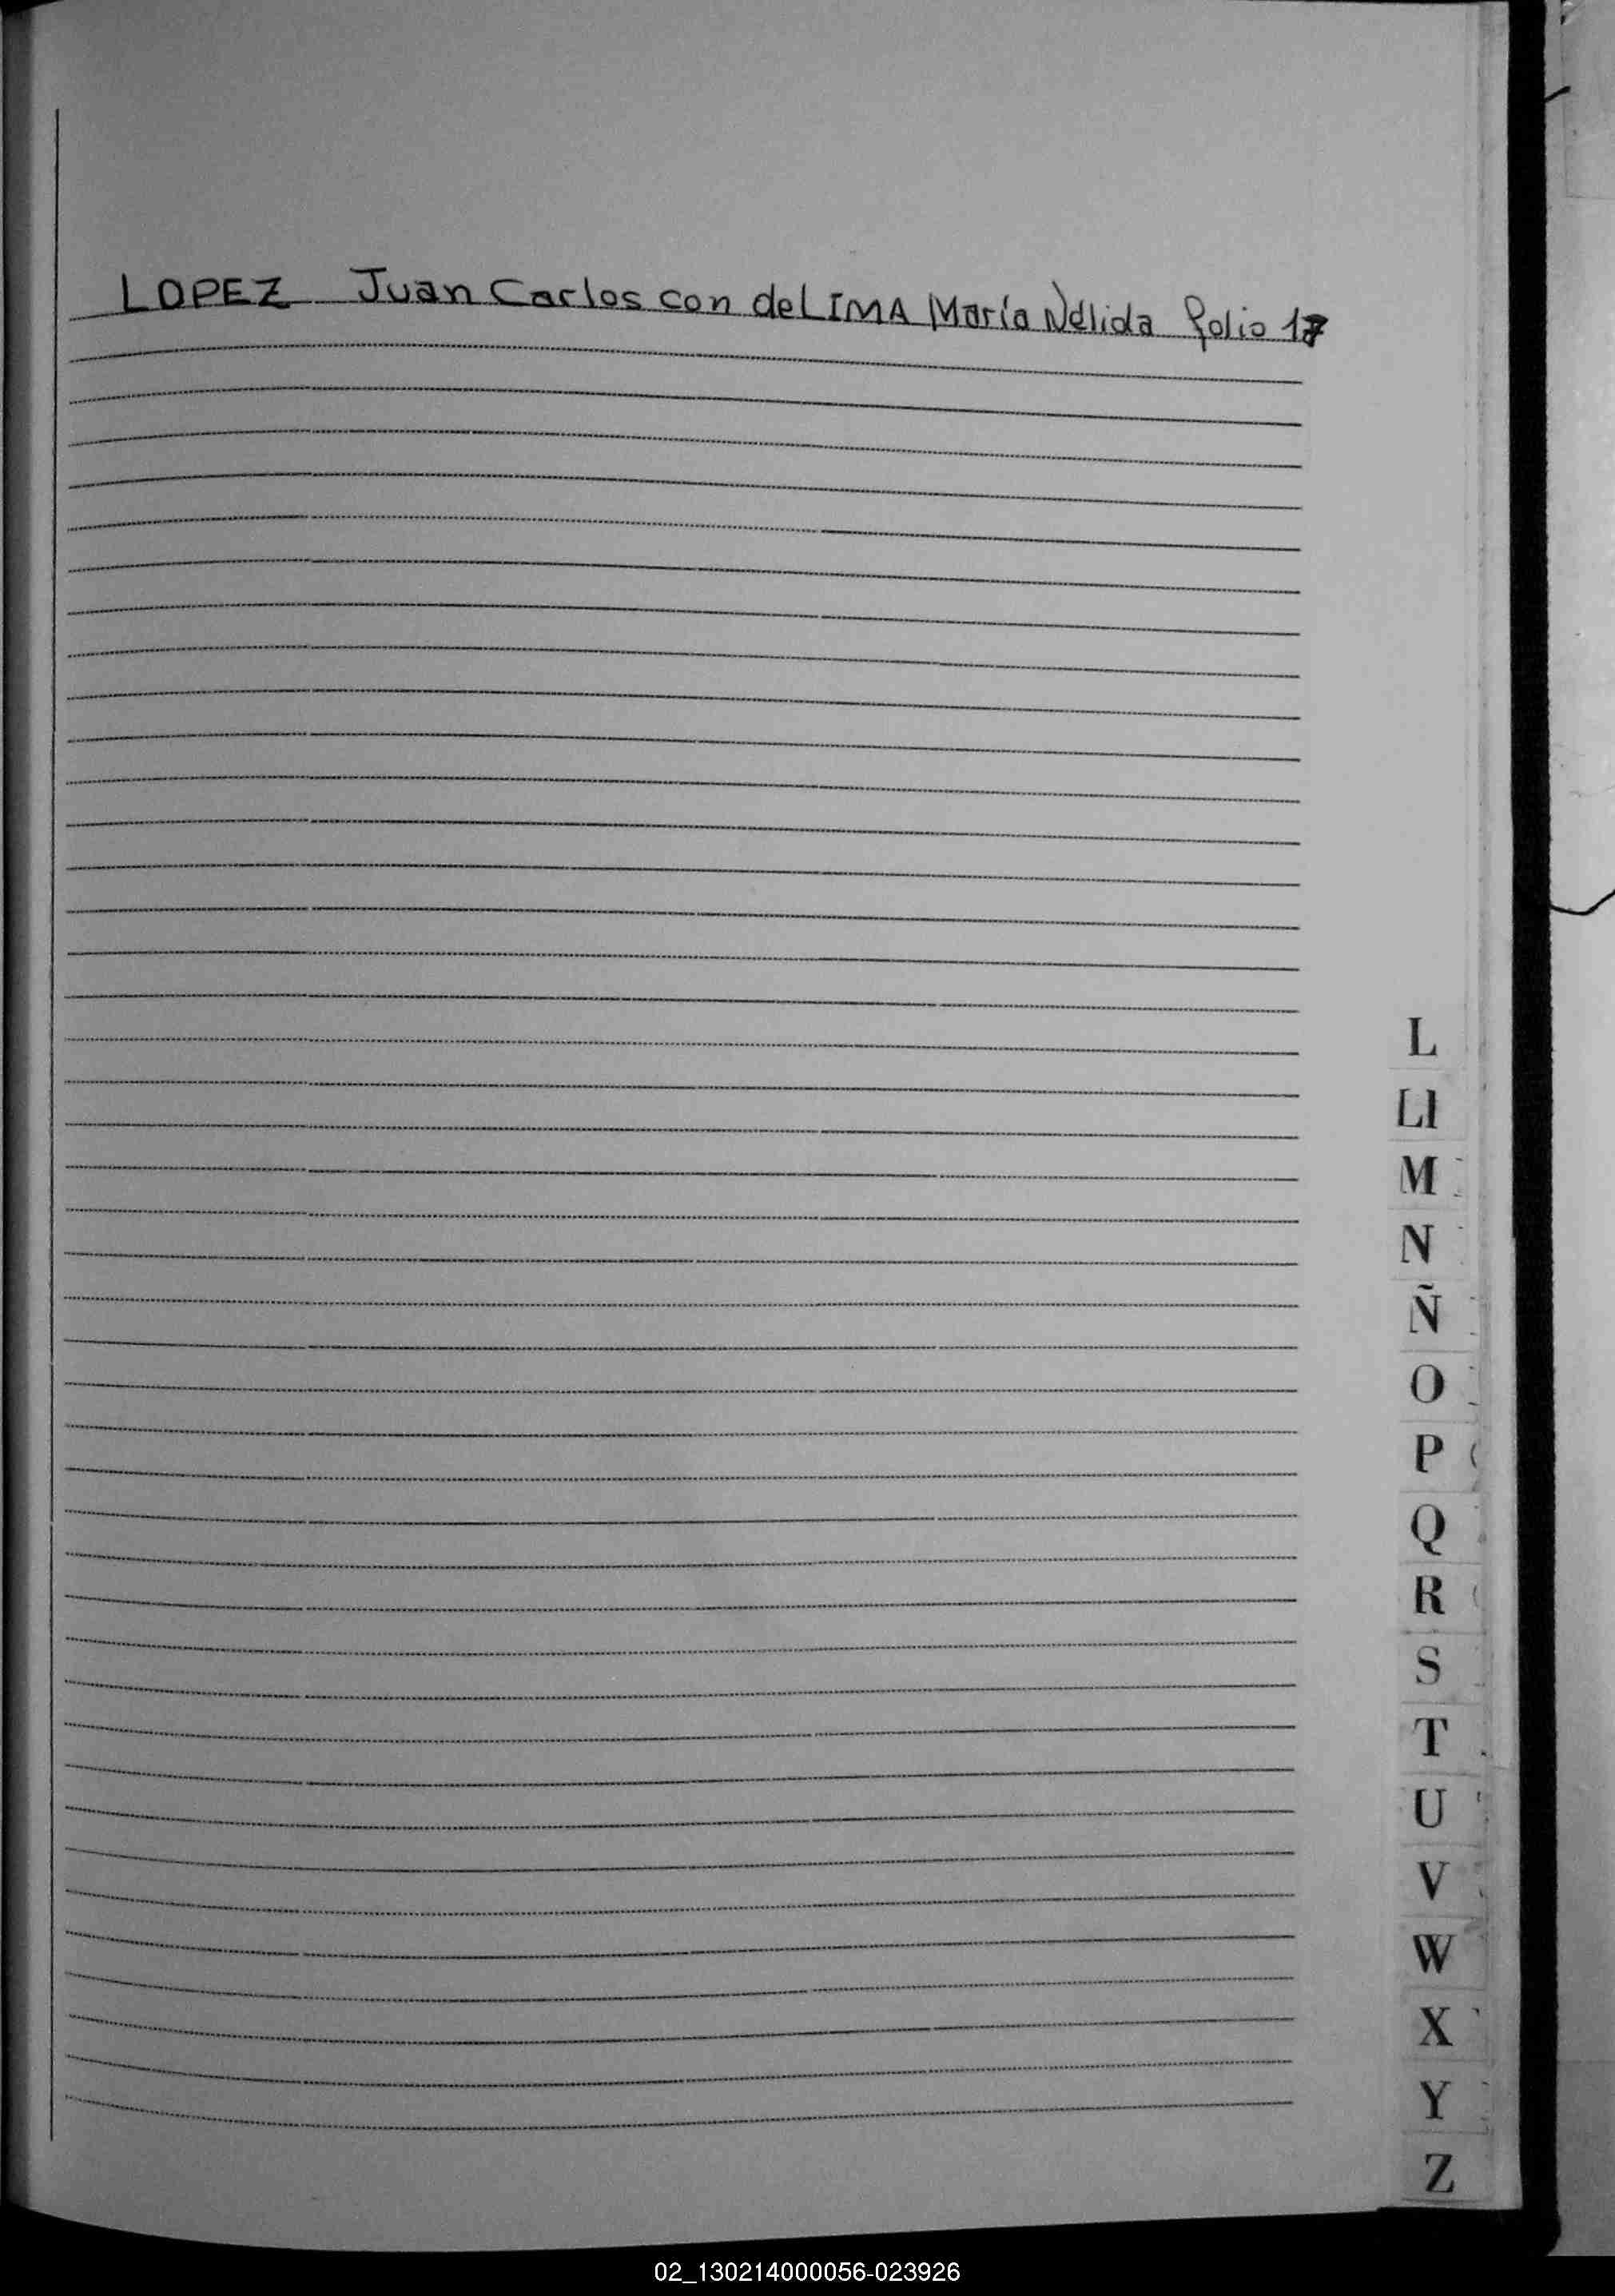 LOPEZ Juan Carlos con de LIMA María Nélida folio 17
L
Ll
M
N
Ñ
O
P
Q
R
S
T
U
V
W
X
Y
Z
02_130214000056-023926